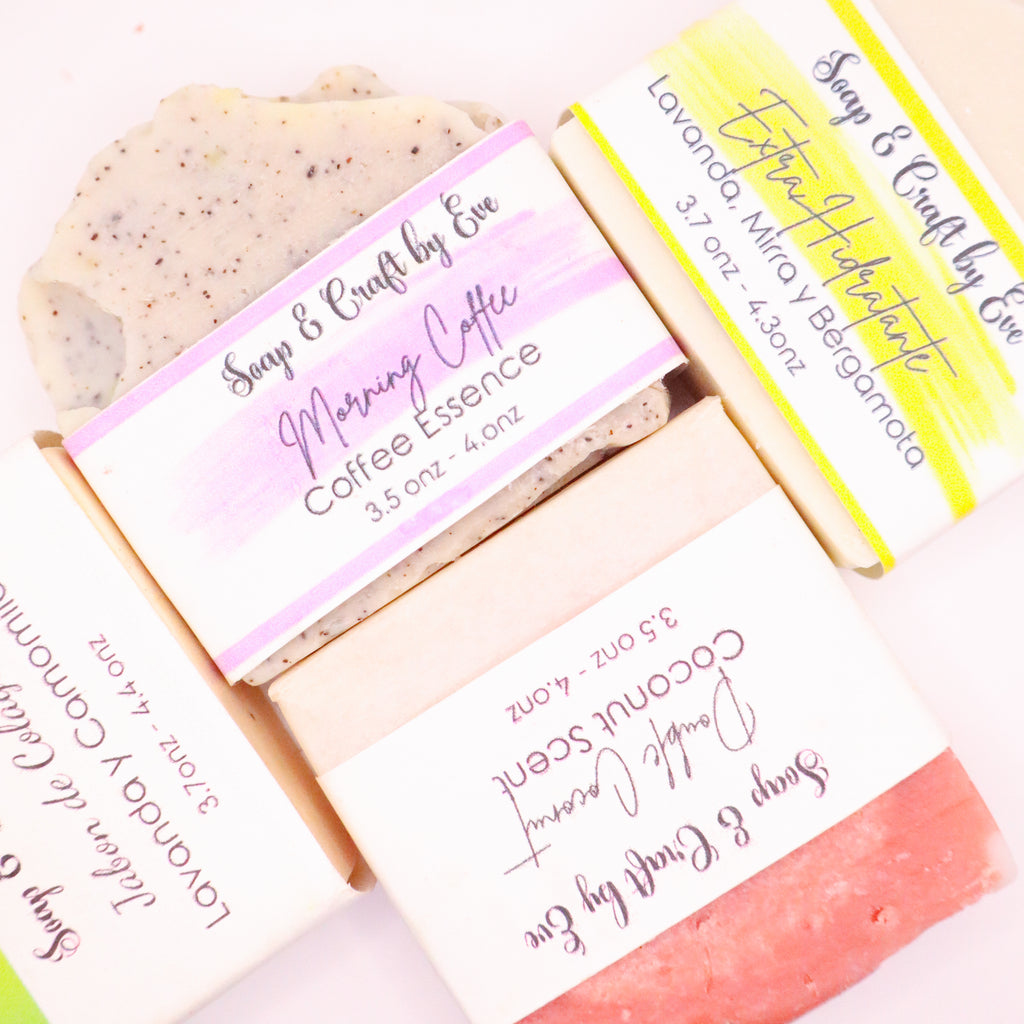 Soap E Craft by Eve
Morning Coffee
Coffee Essence
3.5 onz - 4.onz
Soap E Craft by Eve
Extra Hidratante
Lavanda, Mirra y Bergamota
3.7 onz - 4.3onz
Soap E Craft by Eve
Double Coconut
Coconut Scent
3.5 onz - 4.onz
Soap E
Jabon de
Lavanda y
3.7onz - 4.4 onz